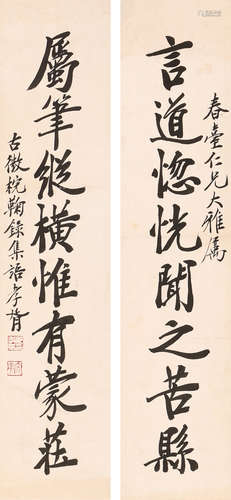 春台仁兄大雅属
言道惚恍聞之苦縣
屬筆縱横惟有蒙莊
古微椀鞠錄集語孝胥